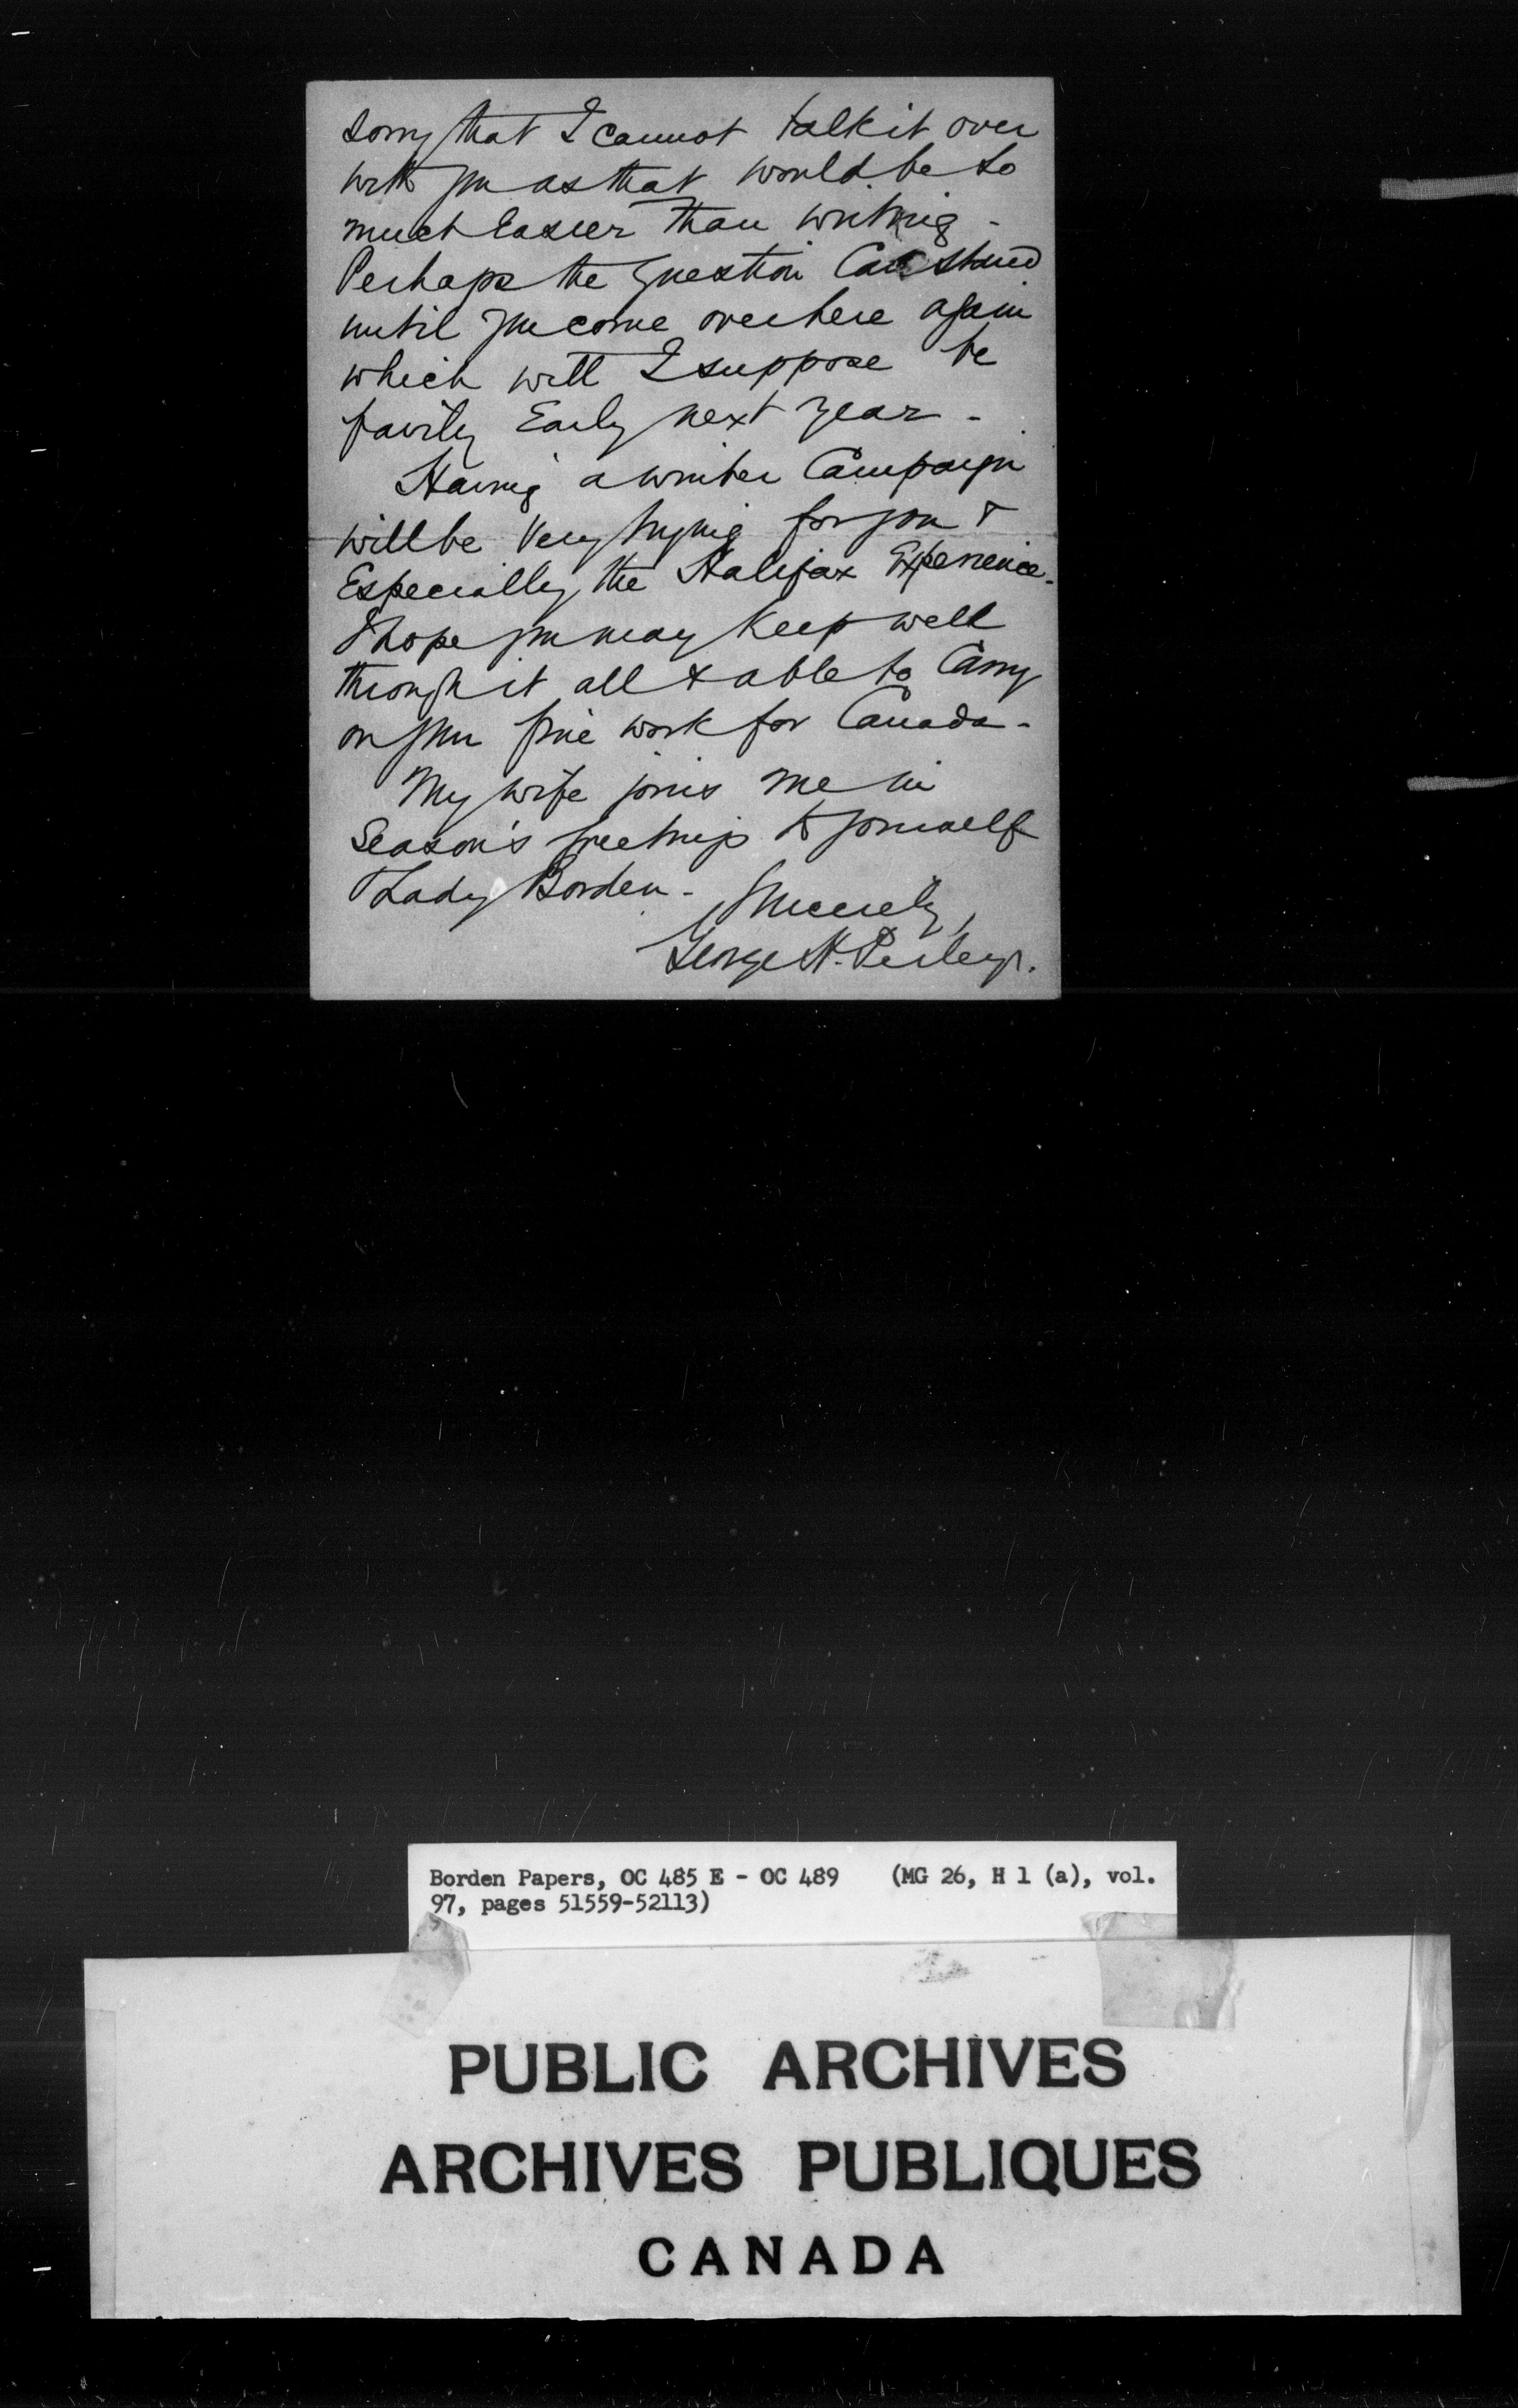 sorry that I cannot talk it over
with you as that would be so
much easier than writing -
Perhaps the question can stand
until you come over here again
which will I suppose be
fairly Early next year -
Having a winter Campaign
will be very trying for you &
Especially the Halifax Experience -
I hope you may keep well
through it all & able to Carry
on your fine work for Canada -
My wife joins me in
Season's greetings to yourself
& Lady Borden -
Sincerely,
George H. Perley.
Borden Papers, OC 485 E - OC 489 (MG 26, H 1 (a), vol.
97, pages 51559-52113)
PUBLIC ARCHIVES
ARCHIVES PUBLIQUES
CANADA